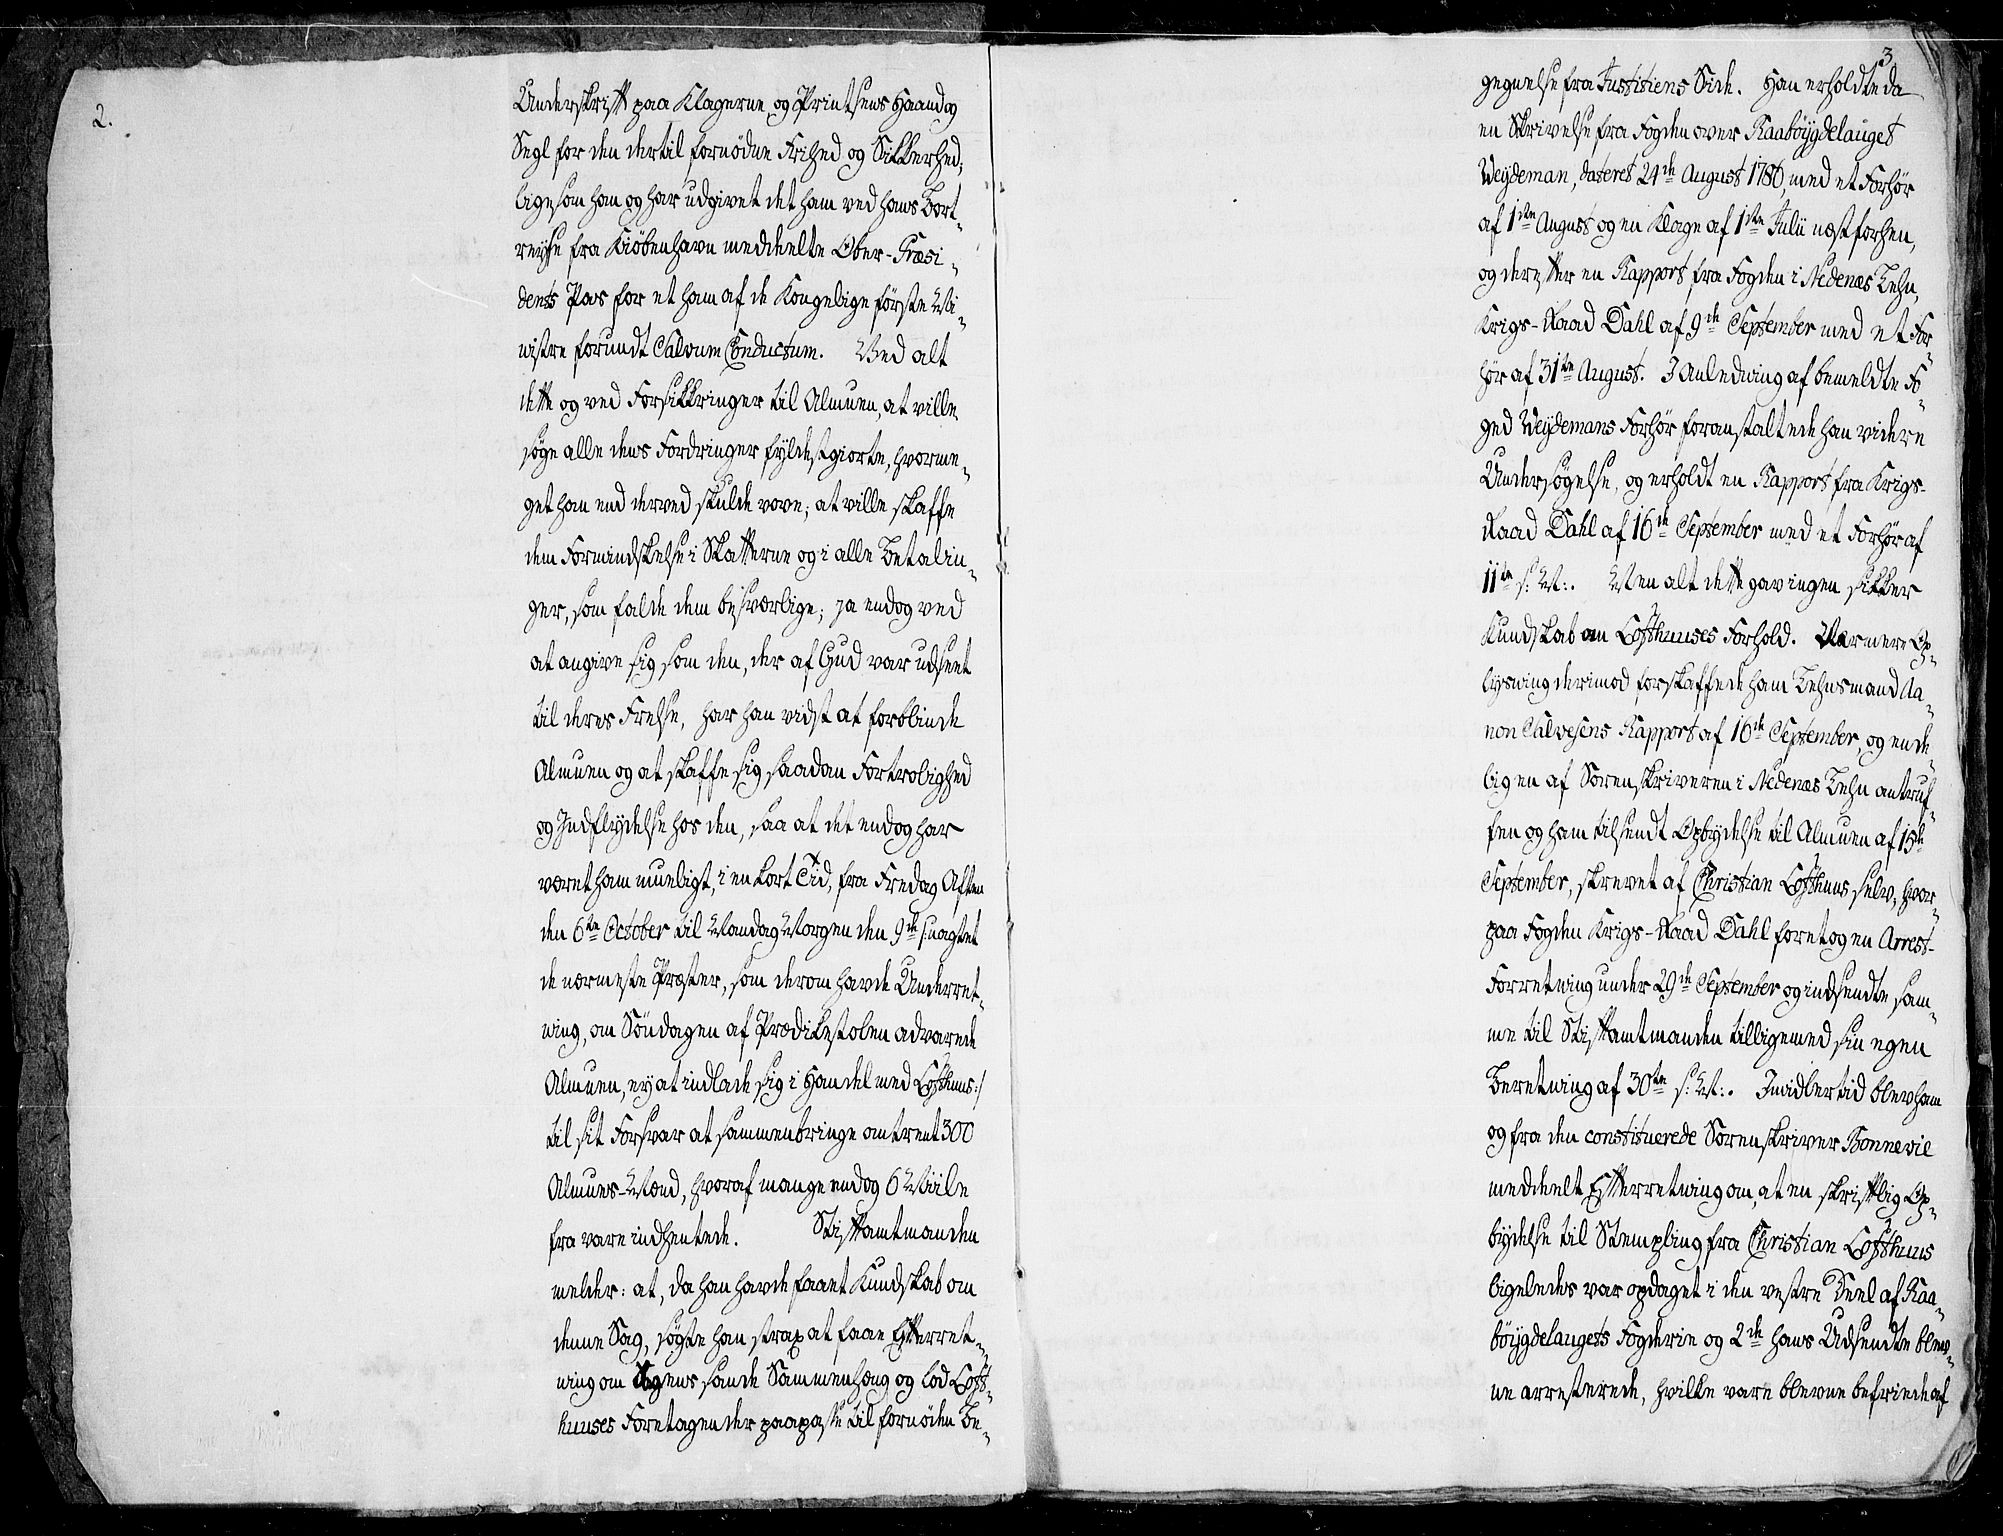 2.
Underskrift paa Klagerne, og Printsens Haand og
Segl for den dertil fornødne Frihed og Sikkerhed;
ligesom han og har udgivet det ham ved hans Bort„
reyse fra Kiöbenhavn meddeelte Ober-Præsi„
dents Pas for et ham af de Kongelige første Mi„
nistre forundt Salvum Conductum. Ved alt
dette og ved Forsikkringer til Almuen, at ville
søge alle dens Fordringer fyldestgiorte, hvorme„
get han end derved skulde vove; at ville skaffe
dem Formindskelse i Skatterne og i alle Betalin„
ger, som falde dem besværlige; ja endog ved
at angive sig som den, der af Gud var udseet
til deres Frelse, har han vidst at forblinde
Almuen og at skaffe sig saadan Fortrolighed
og Indflydelse hos den, saa at det endog har
været ham mueligt, i en kort Tid, fra Fredag Aften
den 6te October til Mandag Morgen den 9de /:uagtet
de nærmeste Præster, som derom havde Underret„
ning, om Søndagen af Prædikestolen advarede
Almuen, ey at indlade sig i Handel med Lofthuus:/
til sit Forsvar at sammenbringe omtrent 300
Almues-Mænd, hvoraf mange endog 6 Miile
fra vare indhentede. Stiftamtmanden
melder: at, da han havde faaet Kundskab om
denne Sag, søgte han strax at faae Efterret„
ning om Sagens sande Sammenhæng og lod Loft„
huuses Foretagender paapasse til fornøden Be„
3
gegnelse fra Justitiens Side. Han erholdte da
en Skrivelse fra Fogden over Raabøygdelauget
Weydeman, dateret 24de August 1786 med et Forhør
af 1ste August og en Klage af 1ste Julii næstforhen,
og derefter en Rapport fra Fogden i Nedenæs Lehn,
Krigs-Raad Dahl af 9de September med et For„
hør af 31te August. I Anledning af bemeldte Fo„
ged Weydemans Forhør foranstaltede han videre
Undersøgelse, og erholdt en Rapport fra Krigs-
Raad Dahl af 16de September med et Forhør af
11te s: M:. Men alt dette gav ingen sikker
Kundskab om Lofthuuses Forhold. Nærmere Op„
lysning derimod forskaffede ham Lehnsmand Aa„
non Salvesens Rapport af 16de September, og ende„
lig en af Sorenskriveren i Nedenæs Lehn antruf„
fen og ham tilsendt Opbydelse til Almuen af 15de
September, skrevet af Christian Lofthuus selv, hvor„
paa Fogden Krigs-Raad Dahl foretog en Arrest-
Forretning under 29de September og indsendte sam„
me til Stiftamtmanden tilligemed sin egen
Beretning af 30te s: M:. Imidlertid blev ham
og fra den constituerede Sorenskriver Bonnevie
meddeelt Efterretning om, at en skriftlig Op„
bydelse til Stempling fra Christian Lofthuus
ligeledes var opdaget i den vestre Deel af Raa„
bøygdelaugets Fogderie og 2de hans Udsendte blev„
ne arresterede, hvilke vare blevne befriede af